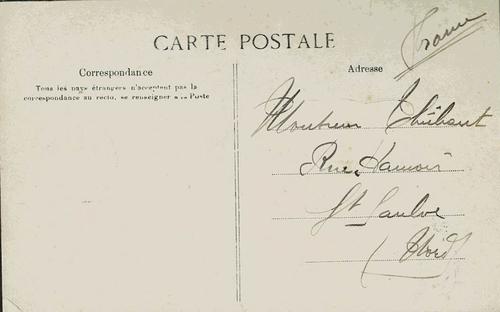 CARTE POSTALE
France
Correspondance
Adresse
Tous les pays étrangers n'acceptent pas la
correspondance au recto, se renseigner à la Poste
Monsieur Thiébaut
Rue
St Saulve
(Nord)